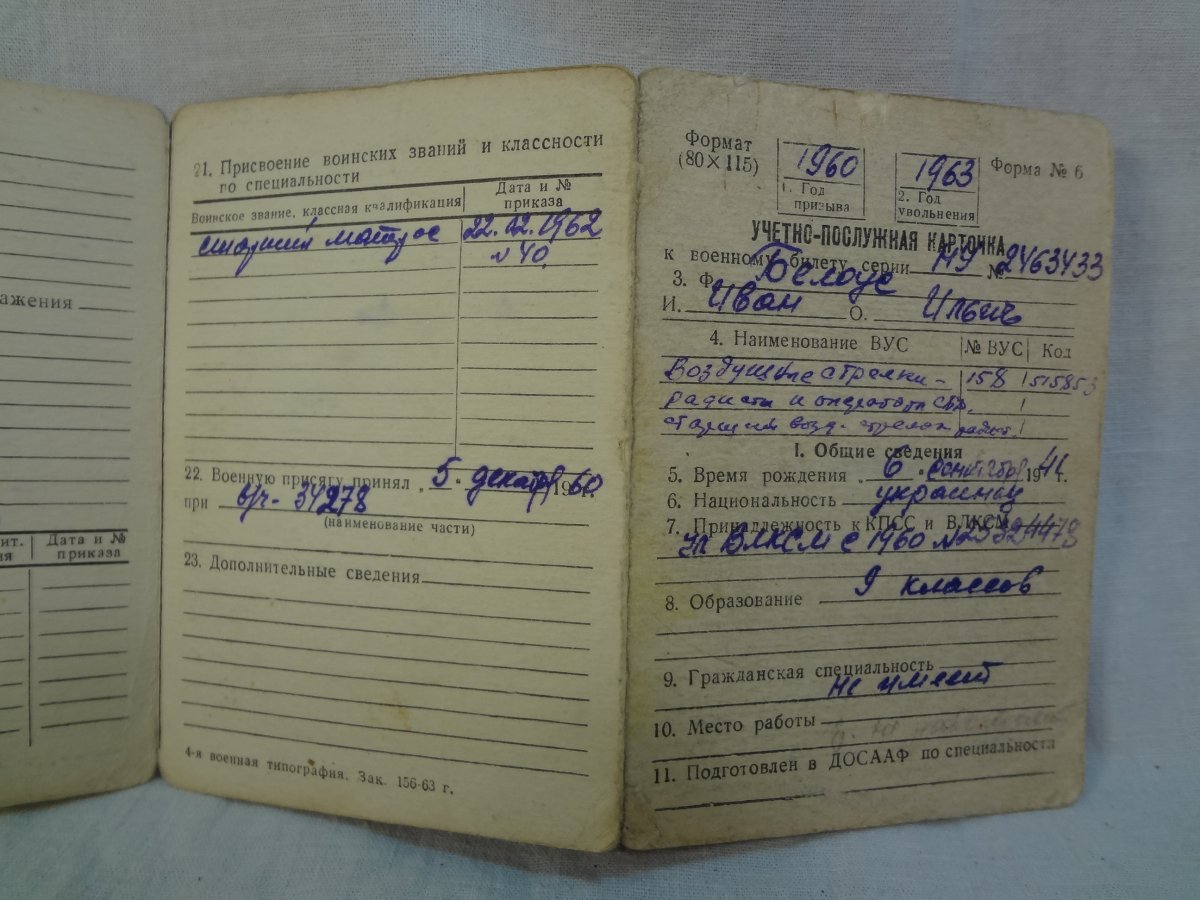 ажения
ит.
ия
Дата и №
приказа
21. Присвоение воинских званий и классности
по специальности
Воинское звание, классная квалификация
Дата и №
приказа
старший матрос 22.02.1962
№ 40.
22. Военную присягу принял „5“ декабря 1960 г.
при в/ч - 34278
(наименование части)
23. Дополнительные сведения
4-я военная типография. Зак. 156-63 г.
Формат
(80×115)
1960
1. Год
призыва
1963
2. Год
увольнения
Форма № 6
УЧЕТНО-ПОСЛУЖНАЯ КАРТОЧКА
к военному билету серии НУ № 2463433
3. Ф. Белоус
И. Иван О. Ильич
4. Наименование ВУС № ВУС Код
Воздушные стрелки- 158 515853
радисты и операторы
старший возд. стрелок радист.
I. Общие сведения
5. Время рождения „6“ сентября 1941 г.
6. Национальность украинец
7. Принадлежность к КПСС и ВЛКСМ
чл ВЛКСМ с 1960 №
8. Образование 9 классов
9. Гражданская специальность
не имеет
10. Место работы
11. Подготовлен в ДОСААФ по специальности